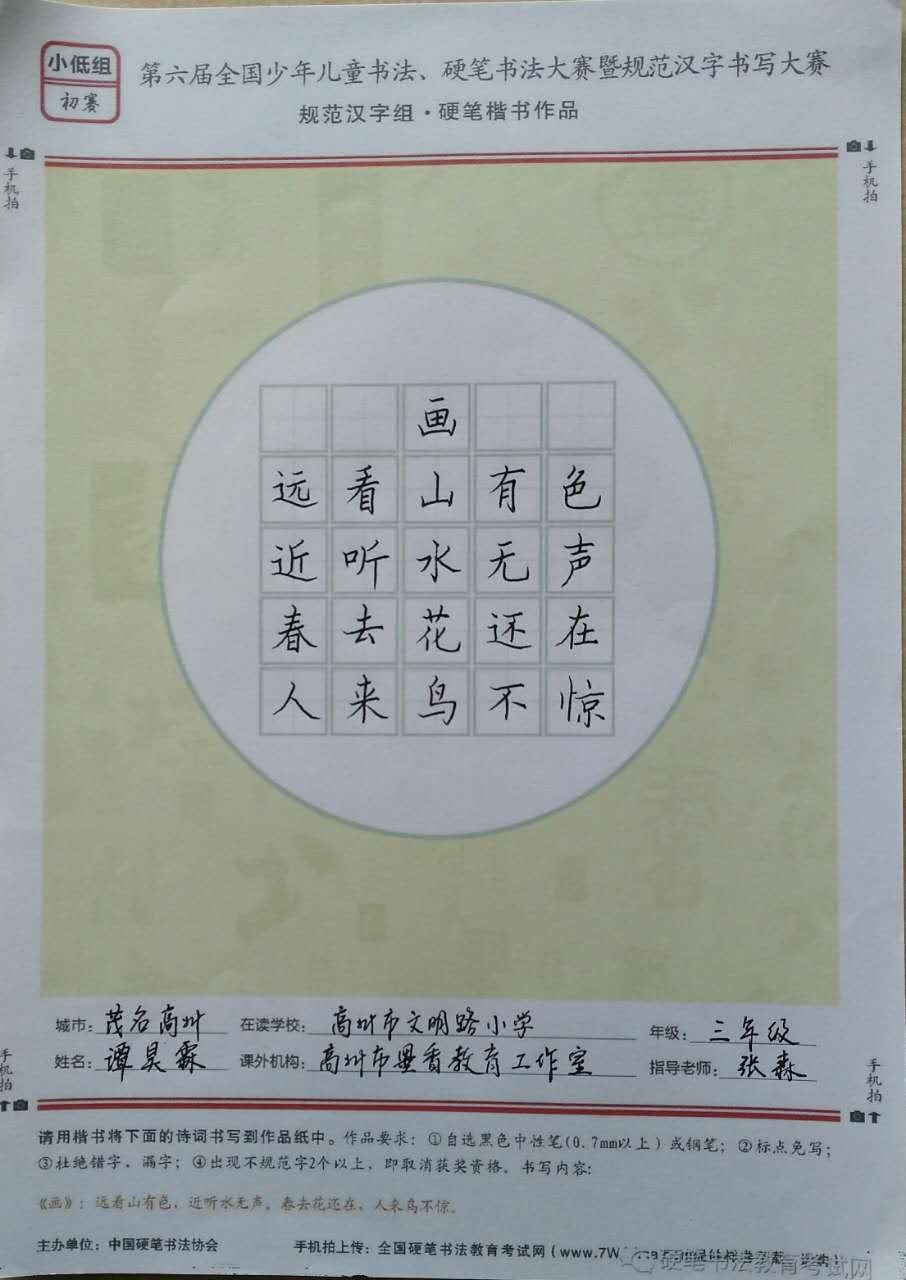 小低组
初赛
第六届全国少年儿童书法、硬笔书法大赛暨规范汉字书写大赛
规范汉字组·硬笔楷书作品
手机拍
手机拍
画
远看山有色
近听水无声
春去花还在
人来鸟不惊
城市：茂名高州 在读学校：高州市文明路小学 年级：三年级
姓名：谭昊霖 课外机构：高州市墨香教育工作室 指导老师：张森
手机拍
手机拍
请用楷书将下面的诗词书写到作品纸中。作品要求：①自选黑色中性笔(0.7mm以上)或钢笔；②标点免写；
③杜绝错字，漏字；④出现不规范字2个以上，即取消获奖资格。书写内容：
《画》：远看山有色，近听水无声。春去花还在，人来鸟不惊。
主办单位：中国硬笔书法协会 手机拍上传：全国硬笔书法教育考试网（www.7W
硬笔书法教育考试网